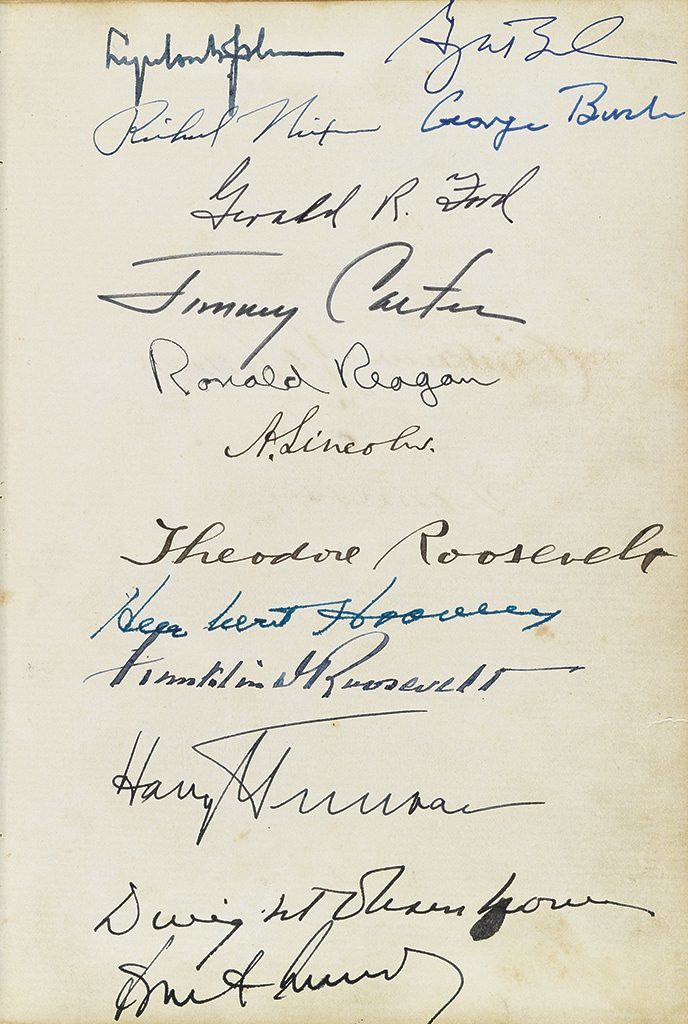 Lyndon B Johnson
Richard Nixon George Bush
Gerald R. Ford
Jimmy Carter
Ronald Reagan
A. Lincoln.
Theodore Roosevelt
Herbert Hoover
Franklin D Roosevelt
Harry Truman
Dwight Eisenhower